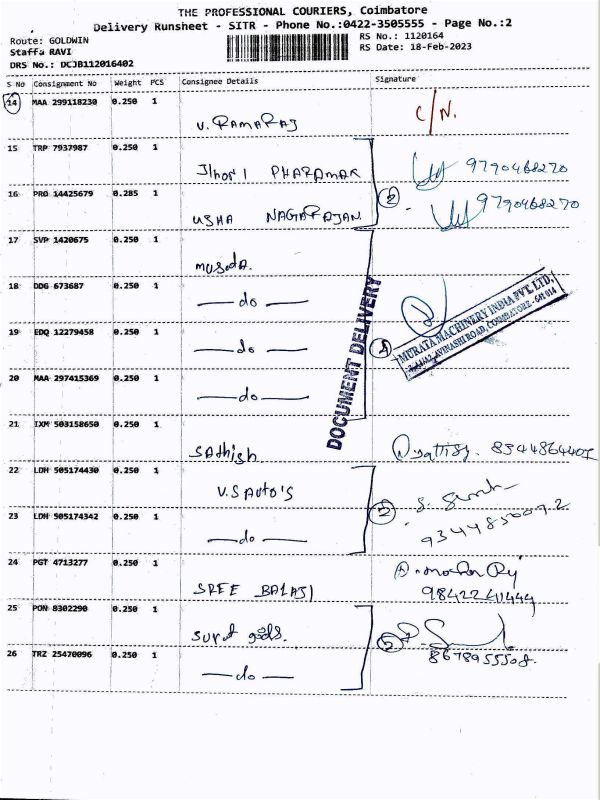 THE PROFESSIONAL COURIERS, Coimbatore
Delivery Runsheet - SITR - Phone No.:0422-3505555 - Page No.:2
Route: GOLDWIN
RS No.: 1120164
Staffa RAVI
RS Date: 18-Feb-2023
DRS No.: DCJB112016402
S No Consignment No Weight PCS Consignee Details Signature
14 MAA 299118230 0.250 1
V. RAMARAJ C/N.
15 TRP 7937987 0.250 1
PHARAMAR 9790468270
16 PRO 14425679 0.285 1
USHA NAGARAJAN 9790468270
17 SVP 1420675 0.250 1
18 DDG 673687 0.250 1
do
DOCUMENT DELIVERY
MURATA MACHINERY INDIA PVT. LTD.
AVINASHI ROAD, COIMBATORE - 641 014
19 EDQ 12279458 0.250 1
do
20 MAA 297415369 0.250 1
do
21 IXM 503158650 0.250 1
Sathish 8344864401
22 LDH 505174430 0.250 1
V.S Auto's
23 LDH 505174342 0.250 1
do
24 PGT 4713277 0.250 1
SREE BALAJI 9842241444
25 PON 8302290 0.250 1
26 TRZ 25470096 0.250 1
do 8678955508.